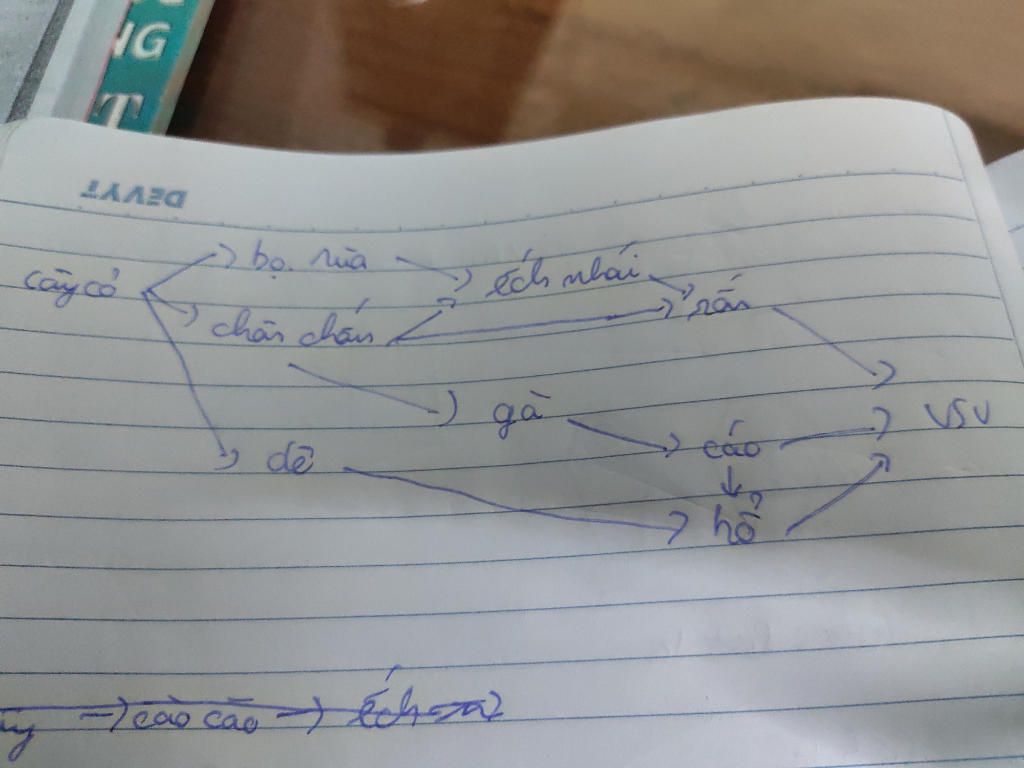 NG
T
DEVYT
cây cỏ → bọ rùa → ếch nhái → rắn
châu chấu
gà
VSV
dê
cáo
↓
hổ
→ cào cào → ếch